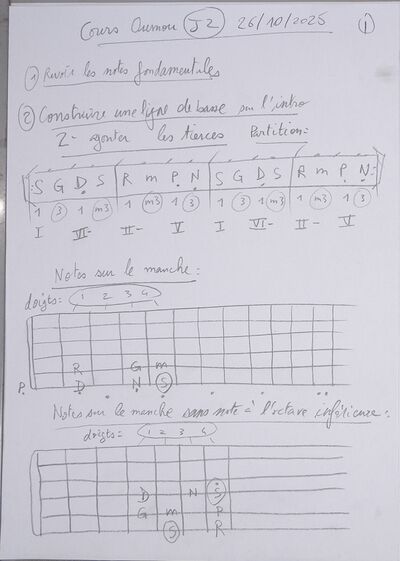 Cours Oumou J2 26/10/2025 1
1) Revoir les notes fondamentales
2) Construire une ligne de basse sur l'intro
2- ajouter les tierces Partition:
S G D S R m P N S G D S R m P N
1 3 1 m3 1 m3 1 3 1 3 1 m3 1 m3 1 3
I VI- II- V I VI- II- V
Notes sur le manche:
doigts: 1 2 3 4
R G m
P D N S
Notes sur le manche sans note à l'octave inférieure:
doigts: 1 2 3 4
D N
G m P
S R